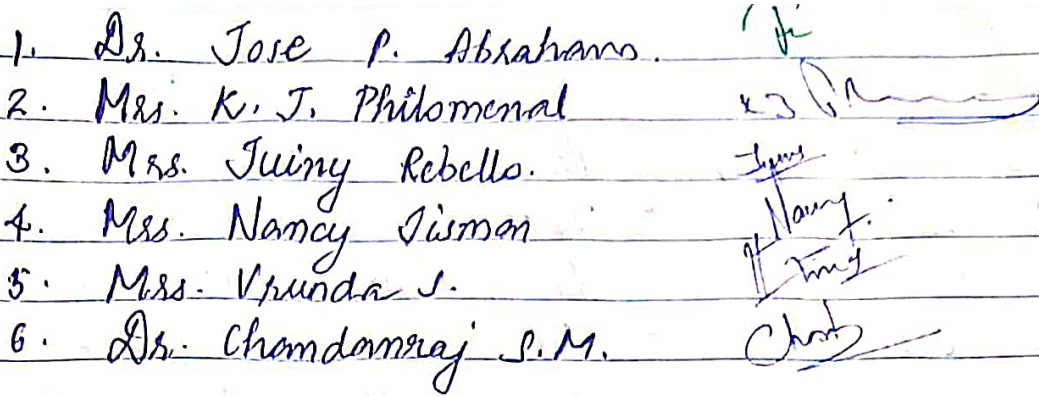 1. Dr. Jose P. Abraham.
2. Mrs. K. J. Philomenal
3. Mrs. Juiny Rebello.
4. Mrs. Nancy Jismon Nancy
5. Mrs. Vrunda S.
6. Dr. Chandanraj S.M.